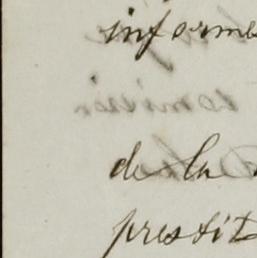 informe
de la
prestit